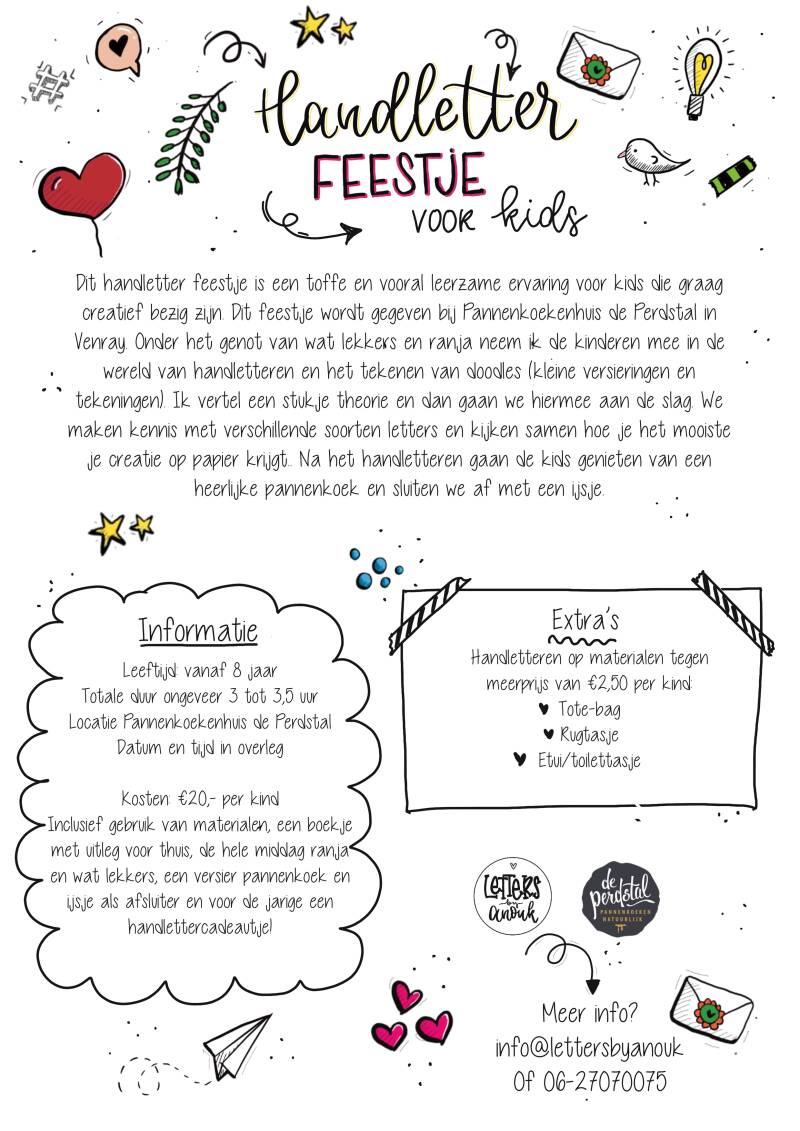 #
Handletter
FEESTJE
VOOR kids
Dit handletter feestje is een toffe en vooral leerzame ervaring voor kids die graag
creatief bezig zijn. Dit feestje wordt gegeven bij Pannenkoekenhuis de Perdstal in
Venray. Onder het genot van wat lekkers en ranja neem ik de kinderen mee in de
wereld van handletteren en het tekenen van doodles (kleine versieringen en
tekeningen). Ik vertel een stukje theorie en dan gaan we hiermee aan de slag. We
maken kennis met verschillende soorten letters en kijken samen hoe je het mooiste
je creatie op papier krijgt.. Na het handletteren gaan de kids genieten van een
heerlijke pannenkoek en sluiten we af met een ijsje.
Informatie
Leeftijd: vanaf 8 jaar
Totale duur ongeveer 3 tot 3,5 uur
Locatie Pannenkoekenhuis de Perdstal
Datum en tijd in overleg
Kosten: €20,- per kind
Inclusief gebruik van materialen, een boekje
met uitleg voor thuis, de hele middag ranja
en wat lekkers, een versier pannenkoek en
ijsje als afsluiter en voor de jarige een
handlettercadeautje!
Extra's
Handletteren op materialen tegen
meerprijs van €2,50 per kind:
Tote-bag
Rugtasje
Etui/toilettasje
LETTERS
by
anouk
de
perdstal
PANNENKOEKEN
NATUURLIJK
Meer info?
info@lettersbyanouk
Of 06-27070075